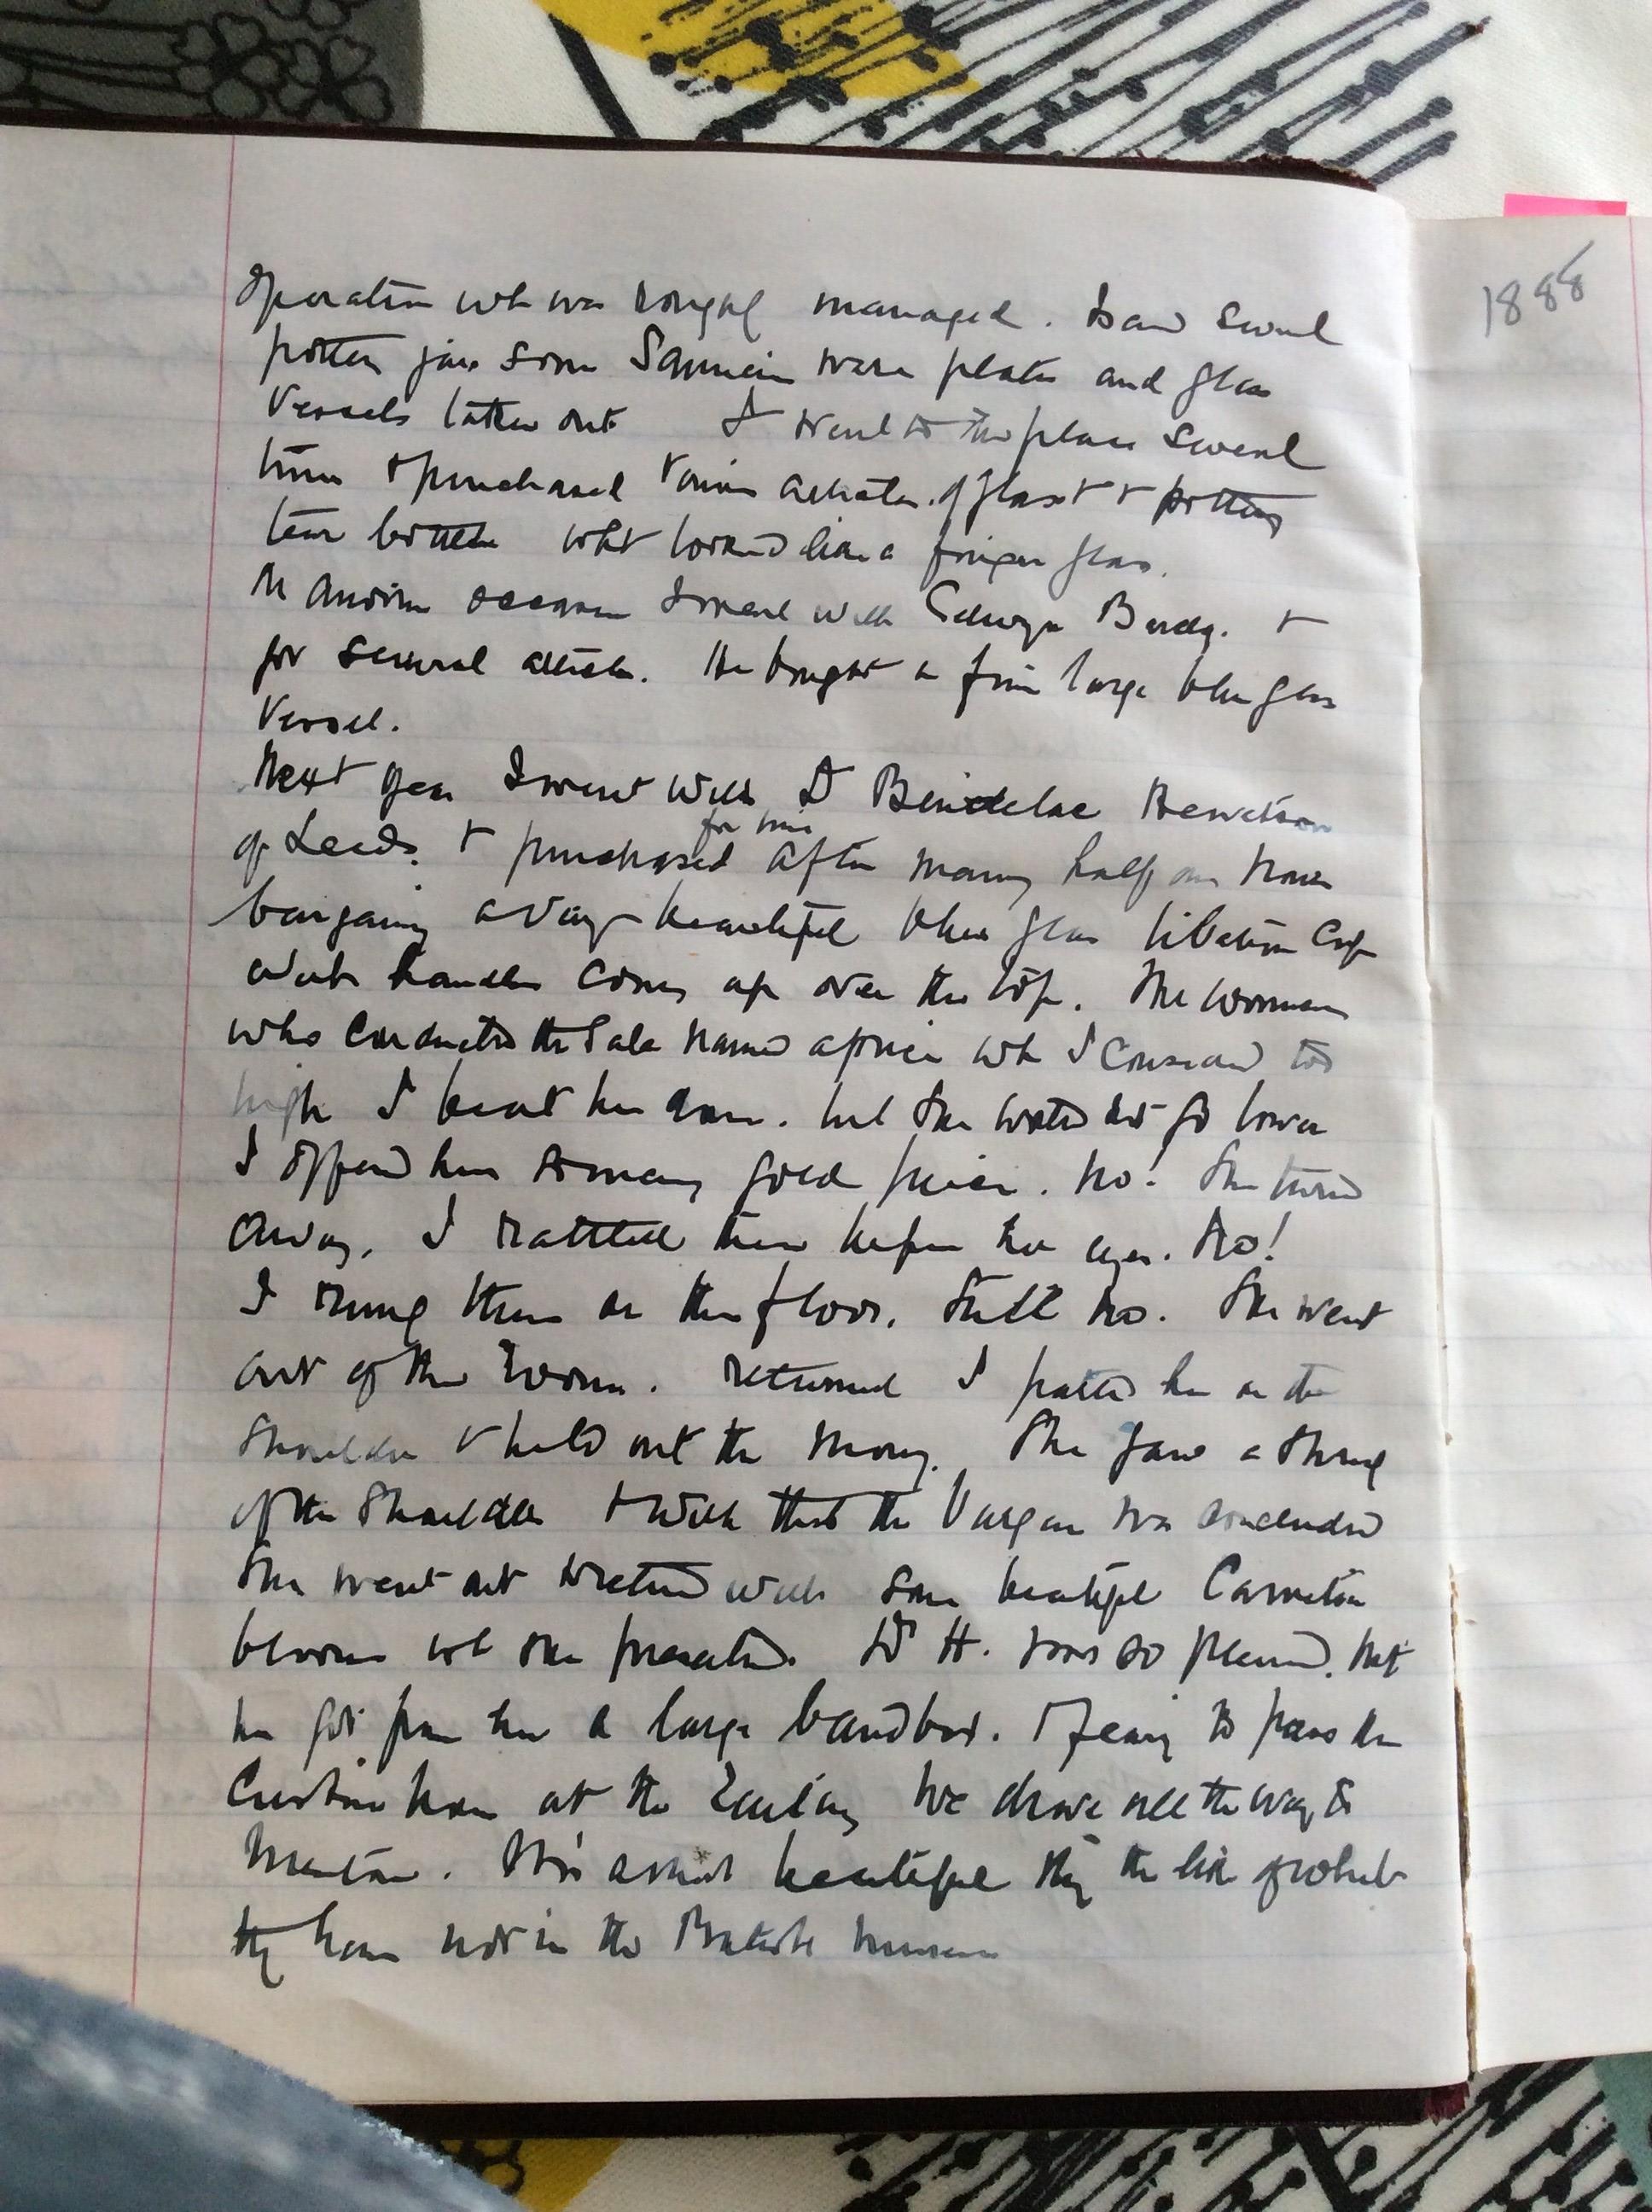 operation wh was roughly managed. I saw several
pottery jars some Samian ware plates and glass
vessels taken out I went to the place several
times & purchased various articles of glass & pottery
tear bottles what looked like a finger glass.
On another occasion I went with &
for several articles. He bought a fine large blue glass
vessel.
Next year I went with Dr Bendelac Hewetson
of Leeds. & purchased for him after many half an hours
bargaining a very beautiful blue glass libation cup
with handles coming up over the top. The woman
who conducted the sale named a price wh I considered too
high I beat her down. but she would not go lower
I offered her so many gold pieces. No! She turned
away. I rattled them before her eyes. No!
I rung them on the floor. Still no. She went
out of the room. returned I patted her on the
shoulder & held out the money. She gave a shrug
of the shoulder & with that the bargain was concluded
She went out & returned with some beautiful Carnation
blooms wh she presented. Dr H. was so pleased. that
he got from her a large bandbox. & fearing to pass the
Custom house at the Railway we drove all the way to
Mentone. It is a most beautiful thing the like of which
they have not in the British Museum
1888